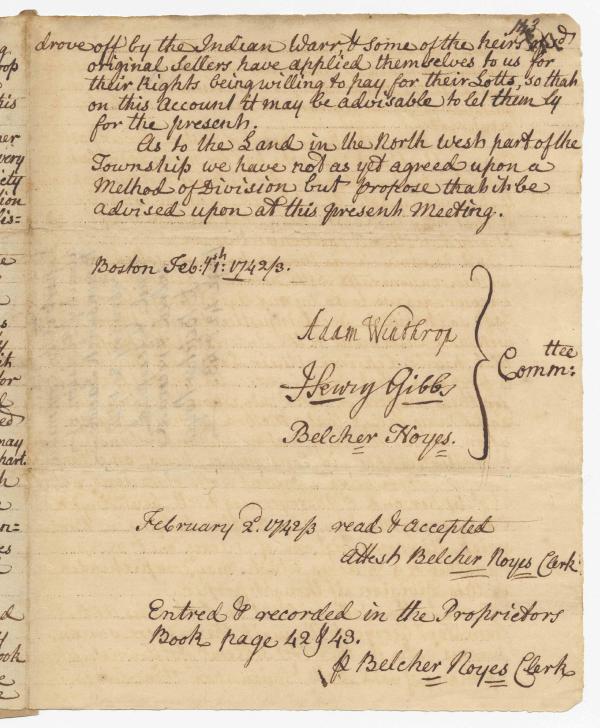 143
drove off by the Indian Warr, & some of the heirs of sd
original Sellers have applied themselves to us for
their Rights being willing to pay for their Lotts, so that
on this account it may be advisable to let them ly
for the present.
As to the Land in the North west part of the
Township we have not as yet agreed upon a
Method of Division but propose that it be
advised upon at this present Meeting.
Boston Feb: 1st: 1742/3.
Adam Winthrop
Henry Gibbs
Belcher Noyes.
Commttee:
February 2d. 1742/3 read & accepted
attest Belcher Noyes Clerk
Entred & recorded in the Proprietors
Book page 42 & 43.
p Belcher Noyes Clerk